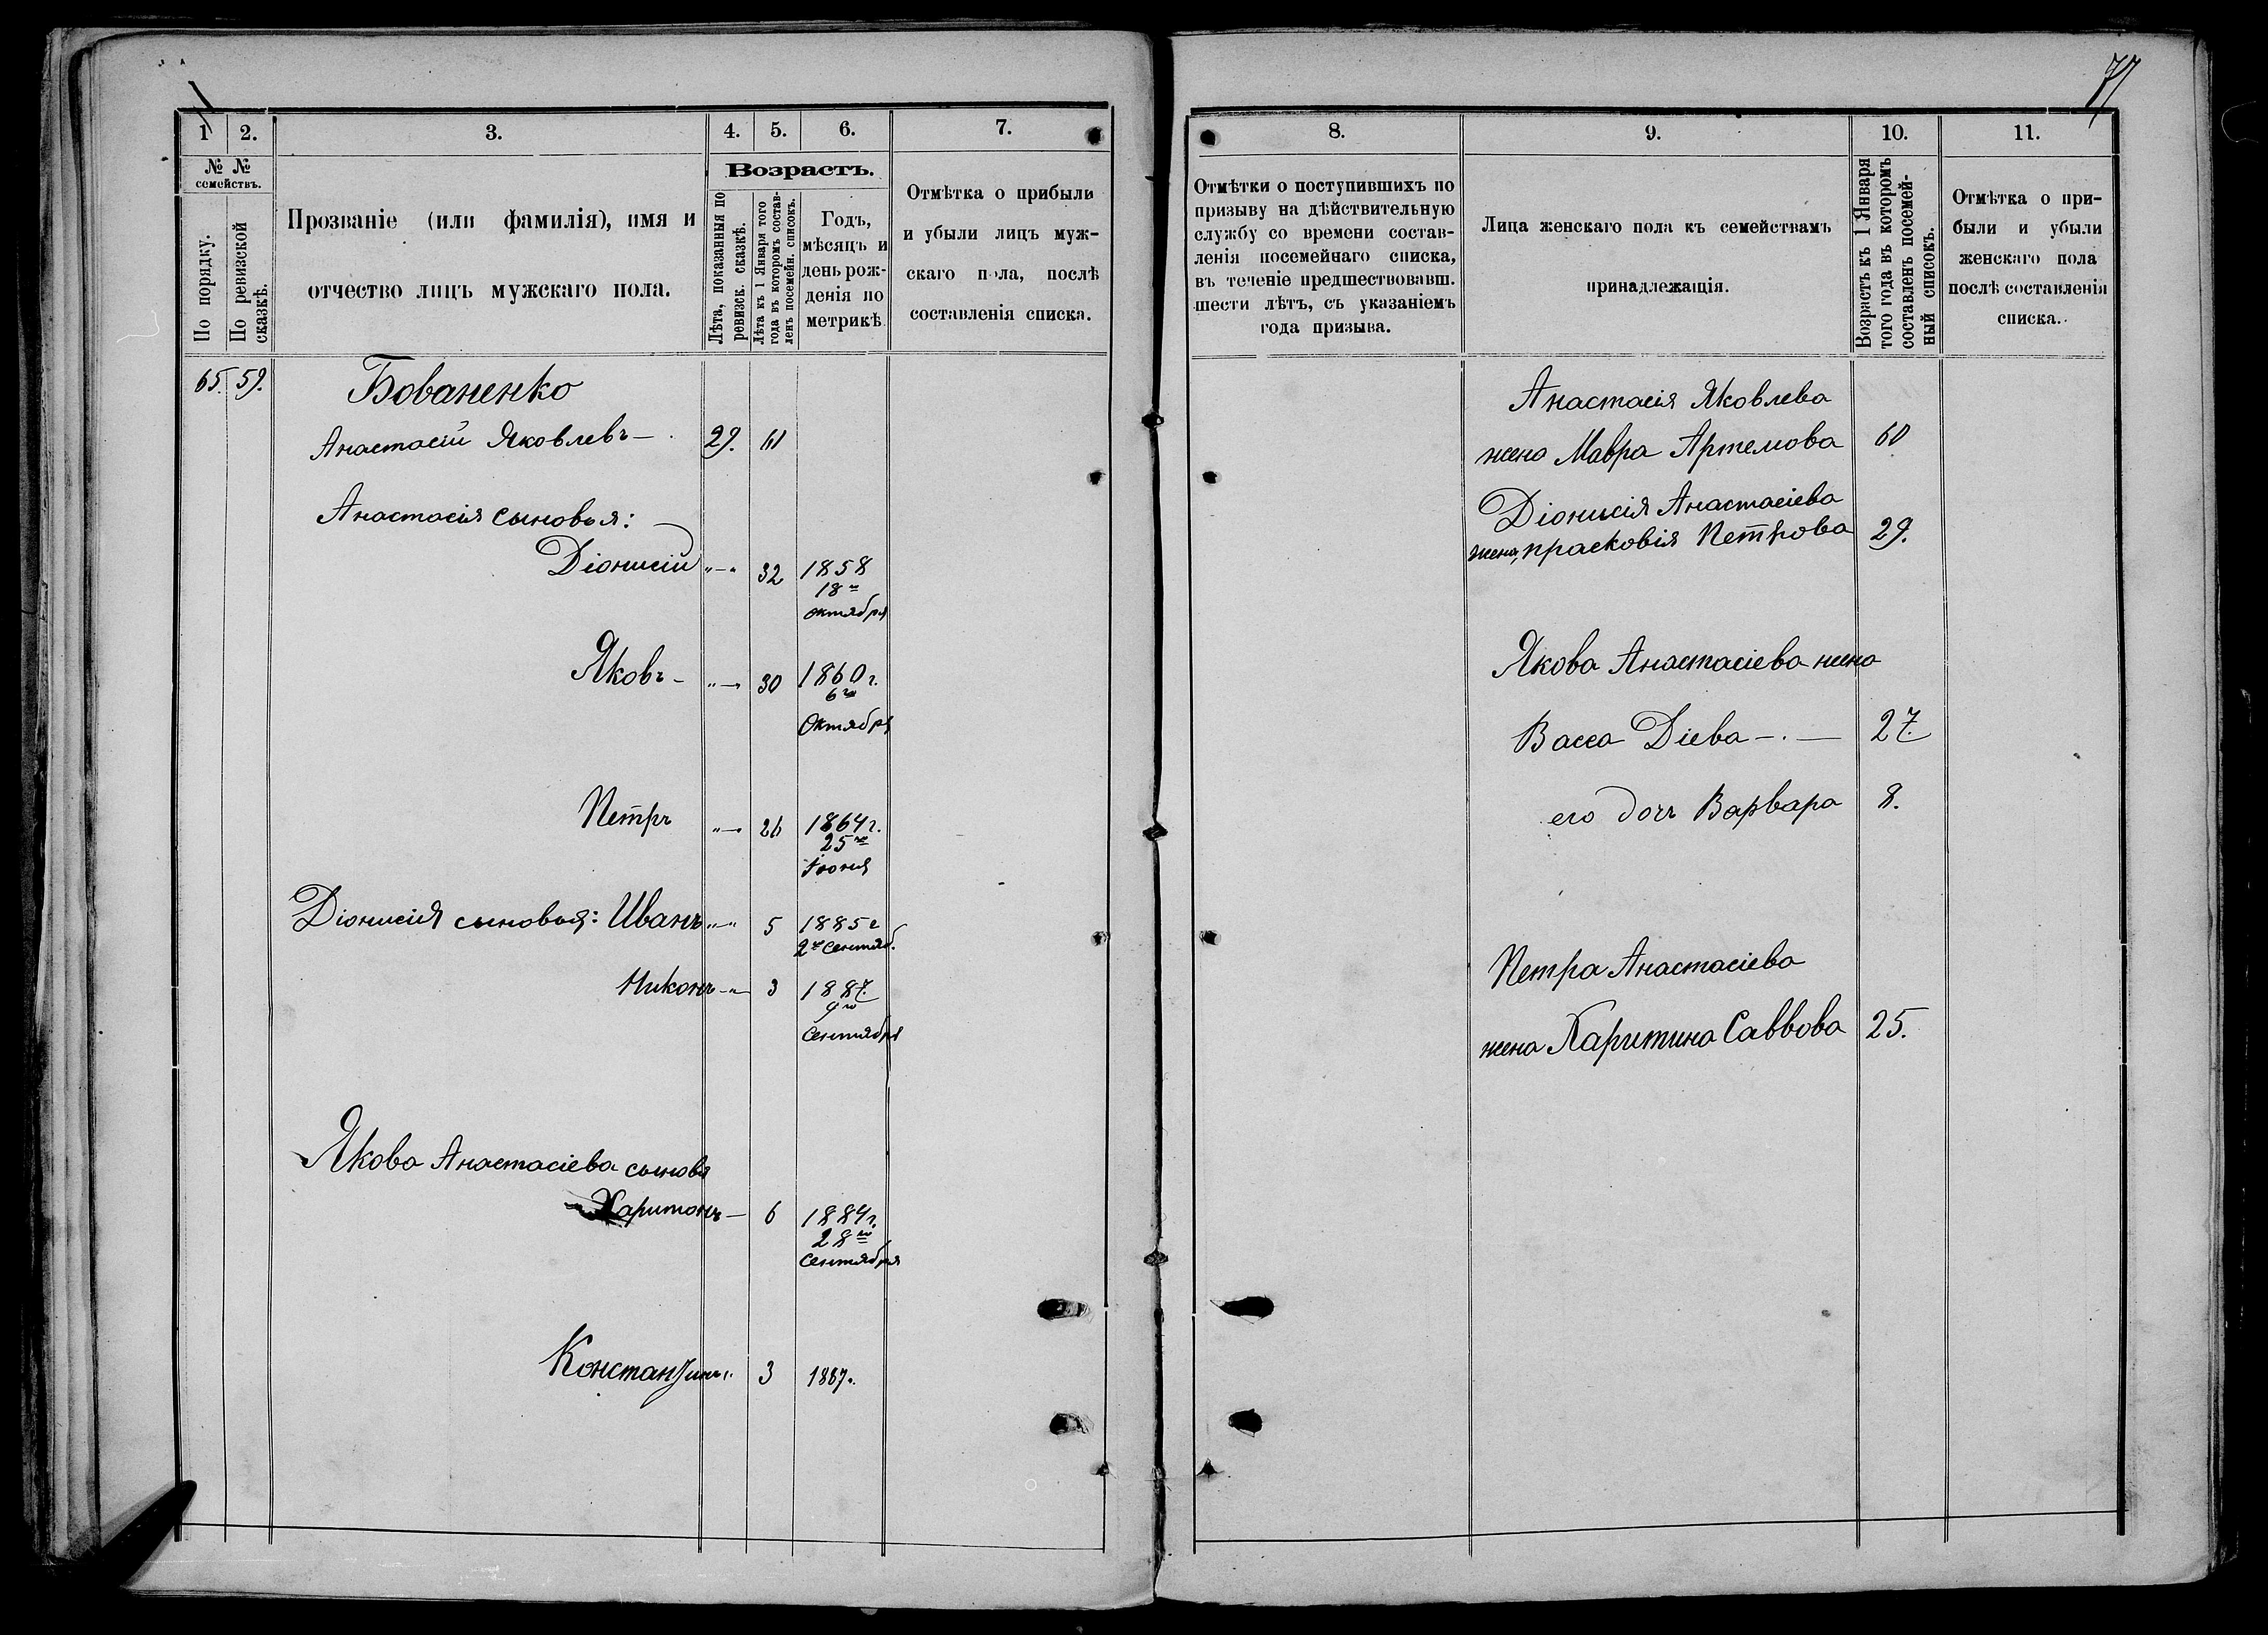 77
1 2. 3. 4. 5. 6. 7.
№ №
семействъ.
По порядку.
По ревизской
сказкѣ.
Прозваніе (или фамилія), имя и
отчество лицъ мужскаго пола.
Возрастъ.
Лѣта, показанныя по
ревизск. сказкѣ.
Лѣта къ 1 Января того
года въ которомъ состав-
ленъ посемейн. списокъ.
Годъ,
мѣсяцъ и
день рож-
денія по
метрикѣ
Отмѣтка о прибыли
и убыли лицъ муж-
скаго пола, послѣ
составленія списка.
65. 59. Бованенко
Анастасій Яковлевъ — 29. 61
Анастасія сыновья:
Діонисій „—„ 32 1858
18го
октября
Яковъ - „—„ 30 1860 г.
6го
Октября
Петръ „—„ 26 1864 г.
25го
Іюня
Діонисія сыновья: Иванъ „—„ 5 1885 г
2го Сентяб.
Никонъ —„— 3 1887.
9го
Сентября
Якова Анастасіева сыновя
Харитонъ — 6 1884 г.
28го
Сентября
Константинъ „ 3 1887.
8. 9. 10. 11.
Отмѣтки о поступившихъ по
призыву на дѣйствительную
службу со времени состав-
ленія посемейнаго списка,
въ теченіе предшествовавш.
шести лѣтъ, съ указаніемъ
года призыва.
Лица женскаго пола къ семействамъ
принадлежащія.
Возрастъ къ 1 Января
того года въ которомъ
составленъ посемей-
ный списокъ.
Отмѣтка о при-
были и убыли
женскаго пола
послѣ составленія
списка.
Анастасія Яковлева
жена Мавра Артемова 60
Діонисія Анастасіева
жена, прасковія Петрова 29.
Якова Анастасіева жена
Васса Діева —.— 27.
его дочь Варвара 8.
Петра Анастасіева
жена Харитина Саввова 25.